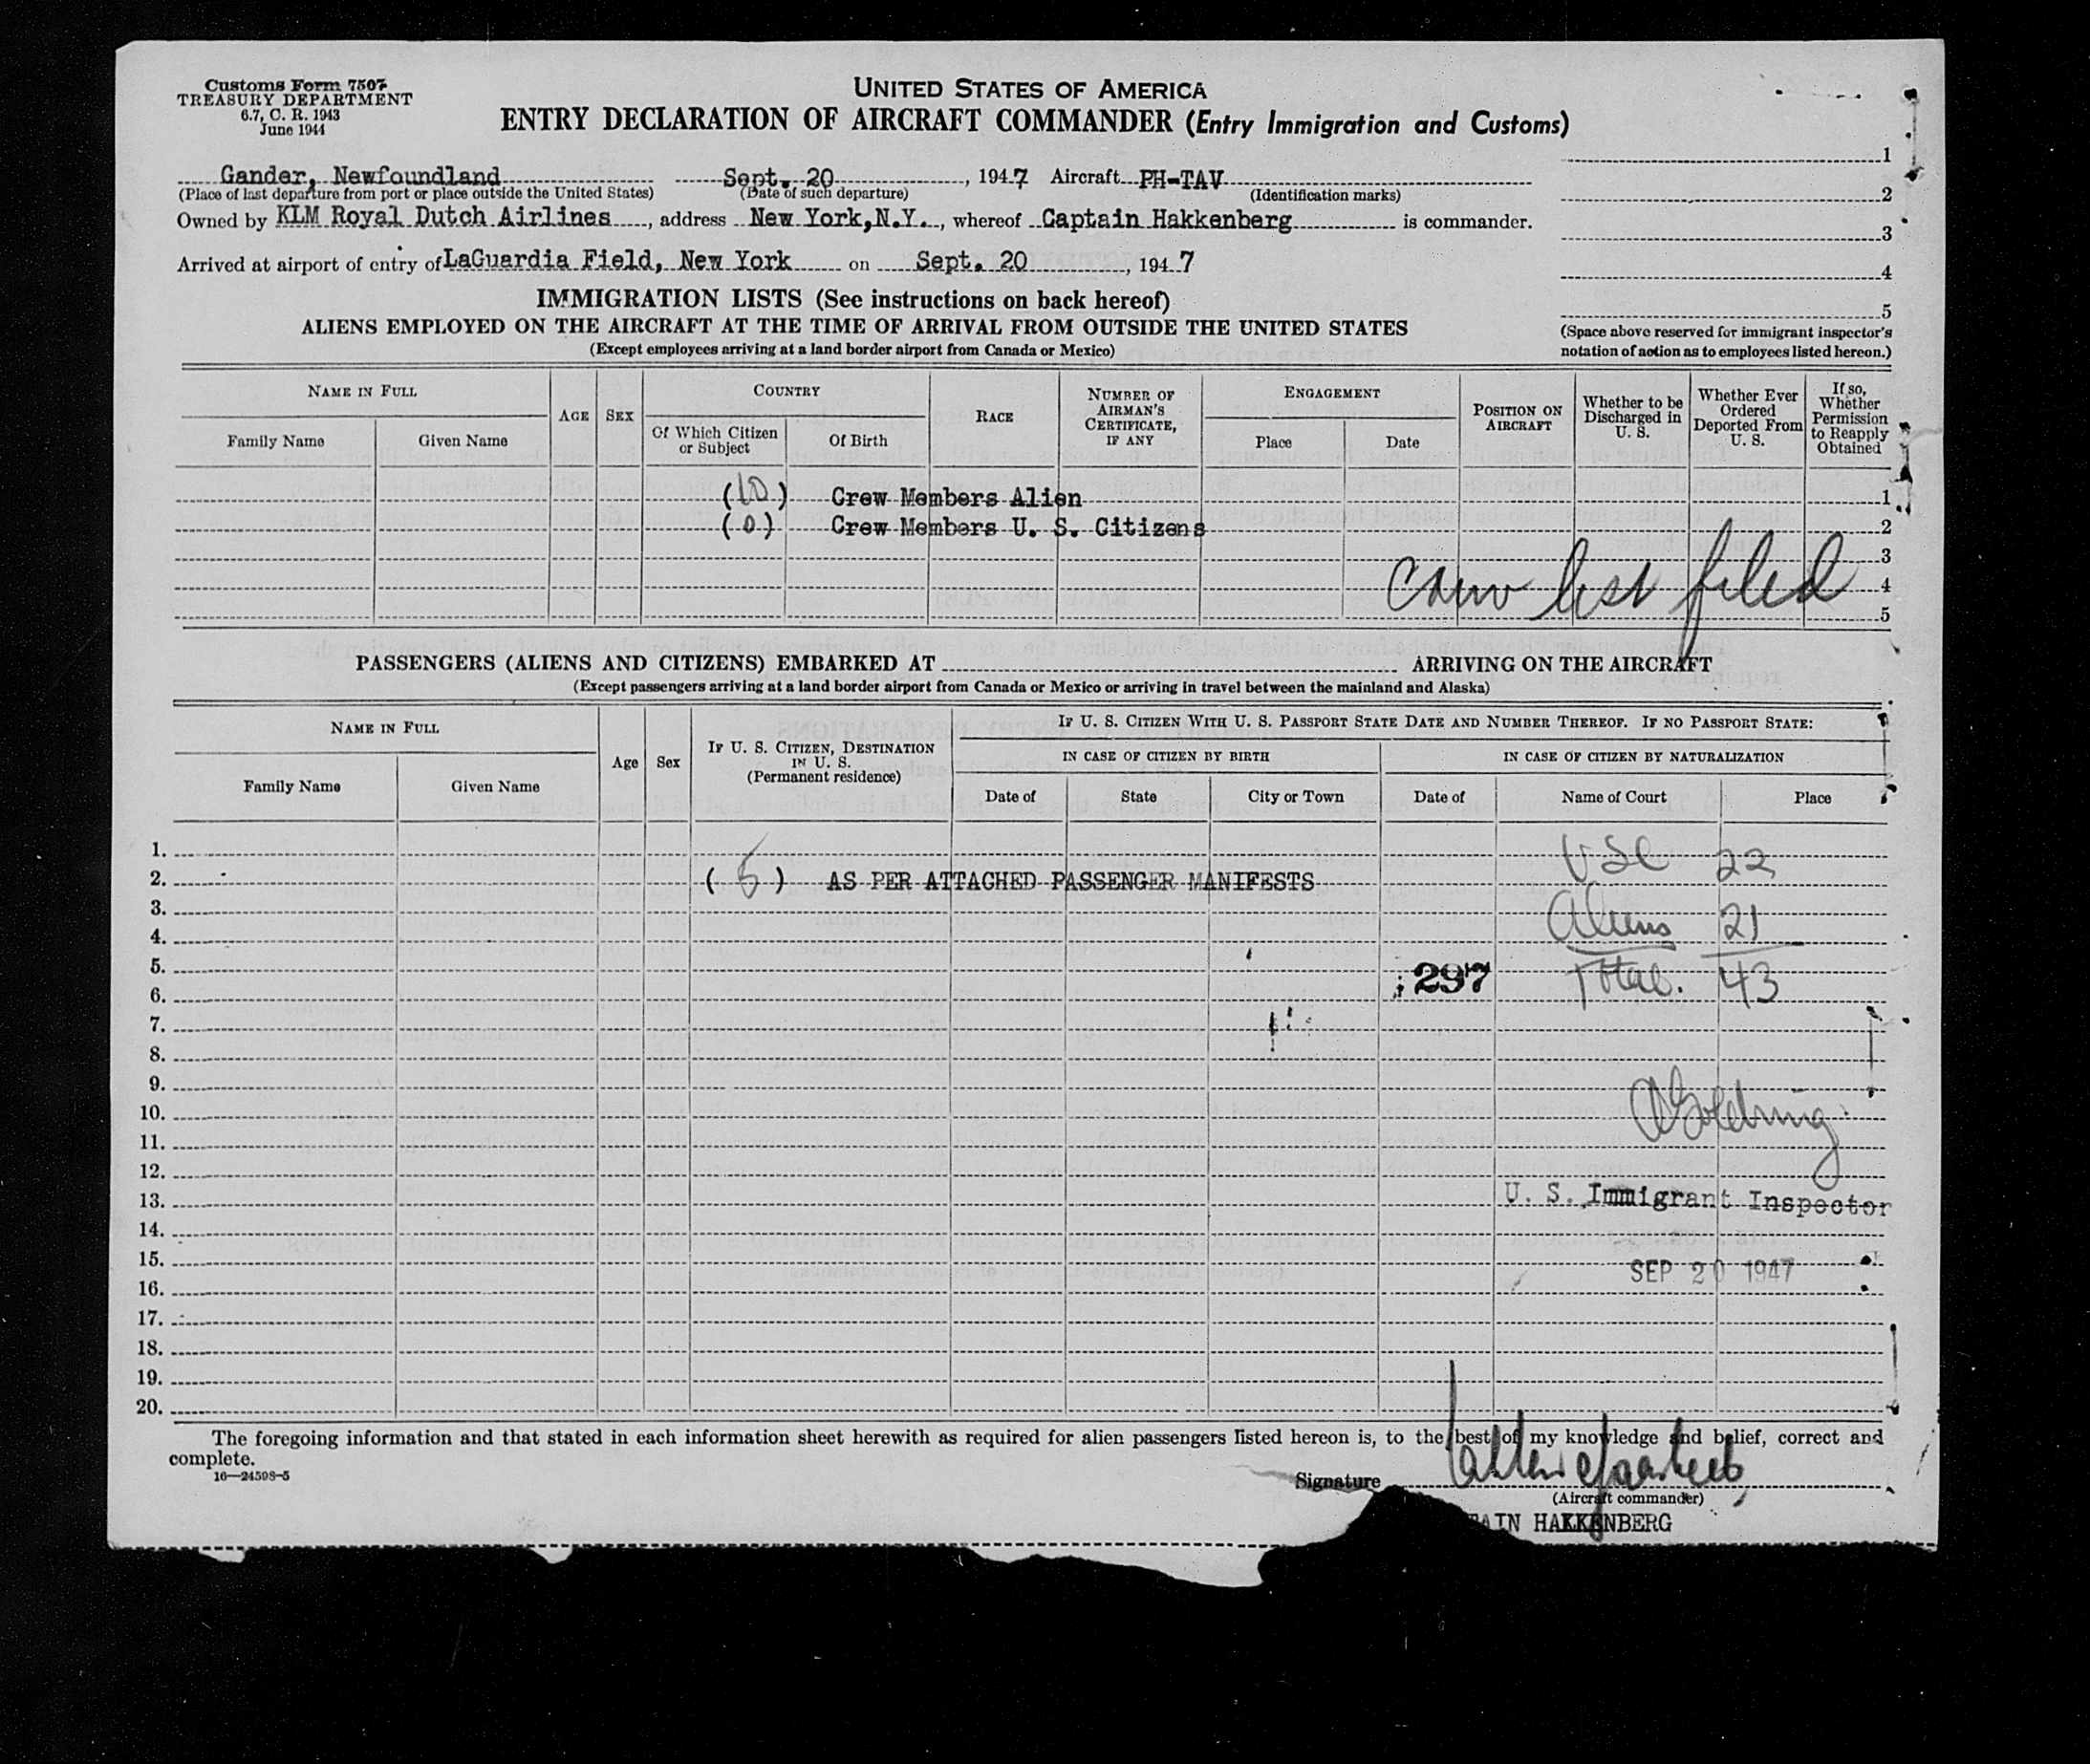 Customs Form 7507
TREASURY DEPARTMENT
6.7, C. R. 1943
June 1944
UNITED STATES OF AMERICA
ENTRY DECLARATION OF AIRCRAFT COMMANDER (Entry Immigration and Customs)
Gander, Newfoundland Sept. 20, 1947 Aircraft PH-TAV
(Place of last departure from port or place outside the United States) (Date of such departure) (Identification marks)
Owned by KLM Royal Dutch Airlines, address New York, N.Y., whereof Captain Hakkenberg is commander.
Arrived at airport of entry of LaGuardia Field, New York on Sept. 20, 1947
1
2
3
4
5
(Space above reserved for immigrant inspector's
notation of action as to employees listed hereon.)
IMMIGRATION LISTS (See instructions on back hereof)
ALIENS EMPLOYED ON THE AIRCRAFT AT THE TIME OF ARRIVAL FROM OUTSIDE THE UNITED STATES
(Except employees arriving at a land border airport from Canada or Mexico)
NAME IN FULL
Family Name
Given Name
AGE
SEX
COUNTRY
Of Which Citizen or Subject
Of Birth
RACE
NUMBER OF AIRMAN'S CERTIFICATE, IF ANY
ENGAGEMENT
Place
Date
POSITION ON AIRCRAFT
Whether to be Discharged in U. S.
Whether Ever Ordered Deported From U. S.
If so, Whether Permission to Reapply Obtained
(10) Crew Members Alien 1
(0) Crew Members U. S. Citizens 2
3
Crew list filed 4
5
PASSENGERS (ALIENS AND CITIZENS) EMBARKED AT ARRIVING ON THE AIRCRAFT
(Except passengers arriving at a land border airport from Canada or Mexico or arriving in travel between the mainland and Alaska)
NAME IN FULL
Family Name
Given Name
Age
Sex
IF U. S. CITIZEN, DESTINATION IN U. S.
(Permanent residence)
IF U. S. CITIZEN WITH U. S. PASSPORT STATE DATE AND NUMBER THEREOF. IF NO PASSPORT STATE:
IN CASE OF CITIZEN BY BIRTH
IN CASE OF CITIZEN BY NATURALIZATION
Date of
State
City or Town
Date of
Name of Court
Place
1. USC 22
2. (5) AS PER ATTACHED PASSENGER MANIFESTS
3. Aliens 21
4.
5. 297 Total. 43
6.
7.
8.
9.
10. Goldring
11.
12.
13. U. S. Immigrant Inspector
14.
15. SEP 20 1947
16.
17.
18.
19.
20.
The foregoing information and that stated in each information sheet herewith as required for alien passengers listed hereon is, to the best of my knowledge and belief, correct and
complete.
16—24598-5
Signature
(Aircraft commander)
AIN HAKKENBERG